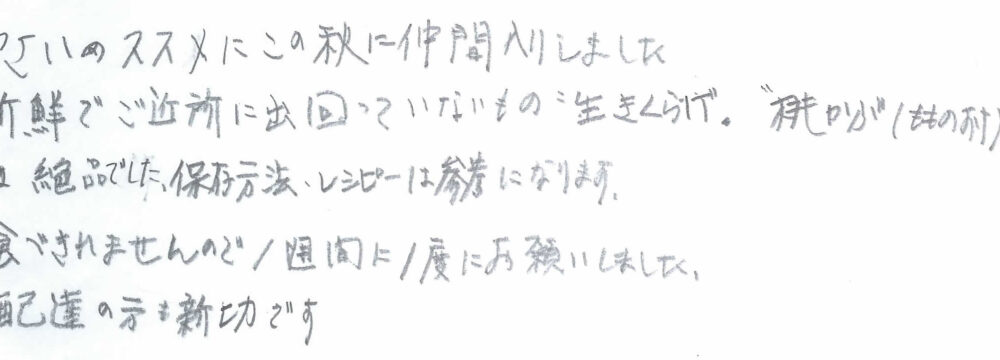 いのススメにこの秋に仲間入りしました
新鮮でご近所に出回っていないもの"生きくらげ。"桃かぶ(もものすけ)
絶品でした、保存方法、レシピーは参考になります。
食べきれませんので1週間に1度にお願いしました。
配達の方も新切です